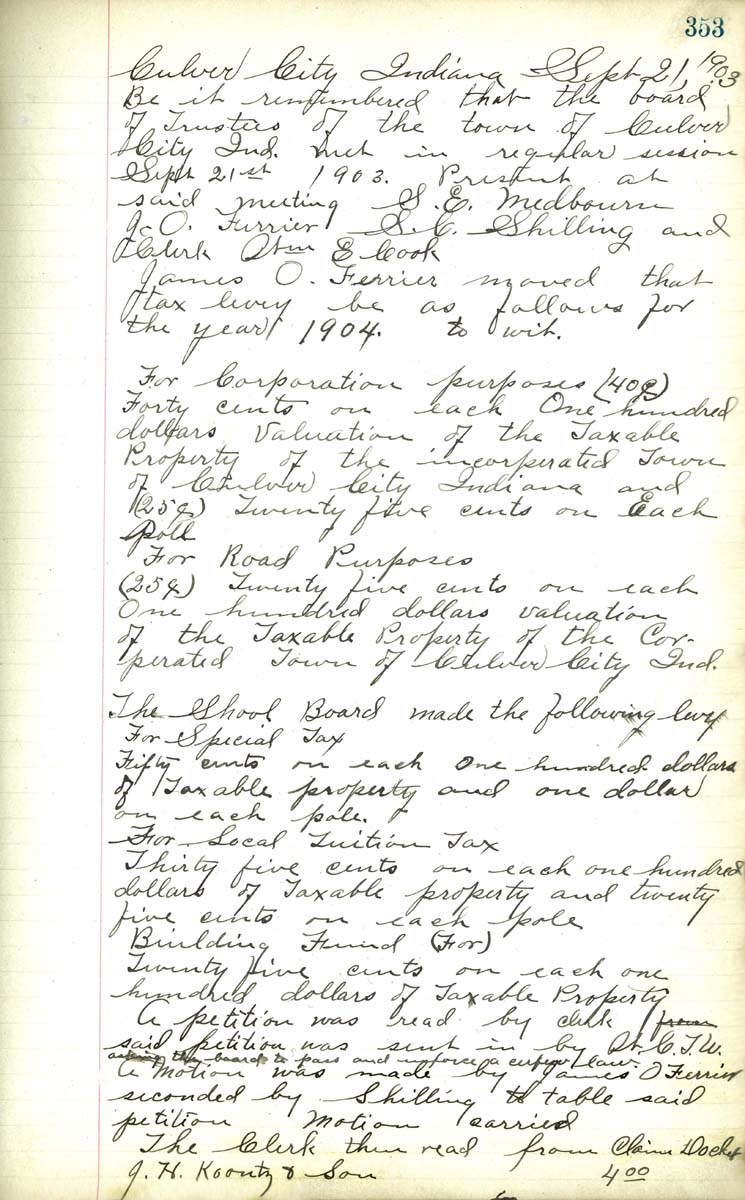 353
Culver City Indiana Sept 21, 1903
Be it remembered that the board
of Trustees of the town of Culver
City Ind. met in regular session
Sept 21st 1903. Present at
said meeting S. E. Medbourn
J. O. Ferrier S. C. Shilling and
Clerk Wm E Cook
James O. Ferrier moved that
tax levey be as follows for
the year 1904. to wit.
For Corporation purposes (40¢)
Forty cents on each One hundred
dollars Valuation of the Taxable
Property of the incorperated Town
of Culver City Indiana and
(25¢) Twenty five cents on Each
Poll
For Road Purposes
(25¢) Twenty five cents on each
One hundred dollars valuation
of the Taxable Property of the Cor-
perated Town of Culver City Ind.
The Shool Board made the following levy
For Special Tax
Fifty cents on each One hundred dollars
of Taxable property and one dollar
on each pole.
For Local Tuition Tax
Thirty five cents on each one hundred
dollars of Taxable property and twenty
five cents on each pole
Building Fund (For)
Twenty five cents on each one
hundred dollars of Taxable Property
A petition was read by clerk from
said petition was sent in by W. C. T. U.
asking the board to pass and inforce a curfew law.
A Motion was made by James O Ferrier
seconded by Shilling to table said
petition Motion carried
The Clerk then read from Claim Docket
J. H. Koontz & Son 4 00